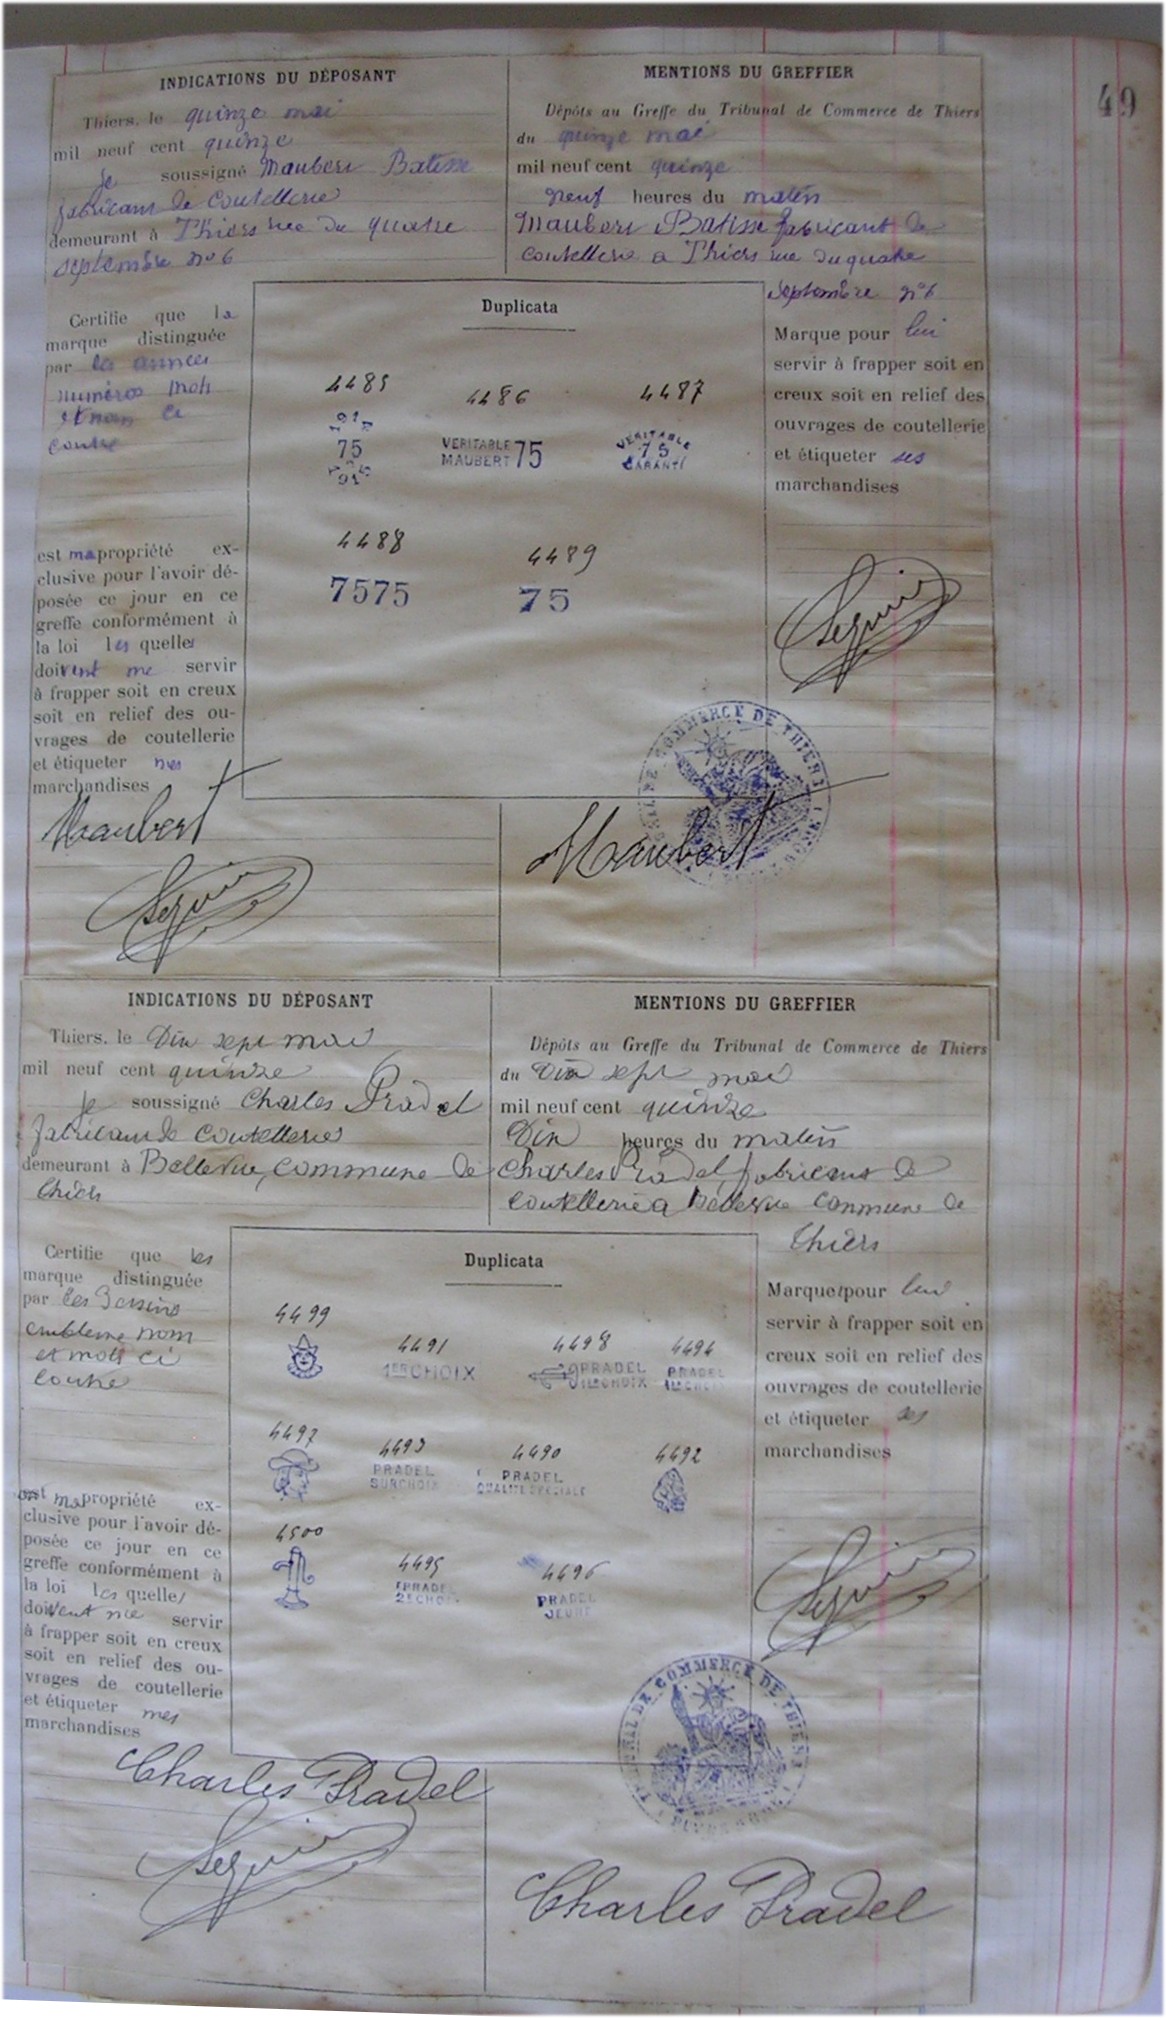 49
INDICATIONS DU DÉPOSANT
Thiers, le quinze mai
mil neuf cent quinze
je soussigné Maubert Batisse
fabricant de coutellerie
demeurant à Thiers rue du quatre
septembre no 6
MENTIONS DU GREFFIER
Dépôts au Greffe du Tribunal de Commerce de Thiers
du quinze mai
mil neuf cent quinze
neuf heures du matin
Maubert Batisse fabricant de
coutellerie a Thiers rue du quatre
Septembre n° 6
Certifie que la
marque distinguée
par les années
numéros mots
et nom ci
contre
est ma propriété ex-
clusive pour l'avoir dé-
posée ce jour en ce
greffe conformément à
la loi les quelles
doivent me servir
à frapper soit en creux
soit en relief des ou-
vrages de coutellerie
et étiqueter mes
marchandises
Duplicata
4485 4486 4487
1915
75
1915
VERITABLE
MAUBERT 75
VERITABLE
75
GARANTI
4488 4489
7575 75
Marque pour lui
servir à frapper soit en
creux soit en relief des
ouvrages de coutellerie
et étiqueter ses
marchandises
Seguin
TRIBUNAL DE COMMERCE DE THIERS
Maubert
Seguin
Maubert
INDICATIONS DU DÉPOSANT
Thiers, le Dix sept mai
mil neuf cent quinze
je soussigné Charles Pradel
fabricant de coutellerie
demeurant à Bellevue, commune de
Thiers
MENTIONS DU GREFFIER
Dépôts au Greffe du Tribunal de Commerce de Thiers
du Dix sept mai
mil neuf cent quinze
Dix heures du matin
Charles Pradel, fabricant de
coutellerie a Bellevue commune de
Thiers
Certifie que les
marque distinguée
par les dessins
embleme nom
et mots ci
contre
est ma propriété ex-
clusive pour l'avoir dé-
posée ce jour en ce
greffe conformément à
la loi les quelles
doivent me servir
à frapper soit en creux
soit en relief des ou-
vrages de coutellerie
et étiqueter mes
marchandises
Duplicata
4499 4491 4498 4494
1ER CHOIX
PRADEL
1ER CHOIX
PRADEL
1ER CHOIX
4497 4493 4490 4492
PRADEL
SURCHOIX
PRADEL
QUALITE SPECIALE
4500 4495 4496
PRADEL
2E CHOIX
PRADEL
JEUNE
Marque pour lui
servir à frapper soit en
creux soit en relief des
ouvrages de coutellerie
et étiqueter ses
marchandises
Seguin
TRIBUNAL DE COMMERCE DE THIERS
Charles Pradel
Seguin
Charles Pradel